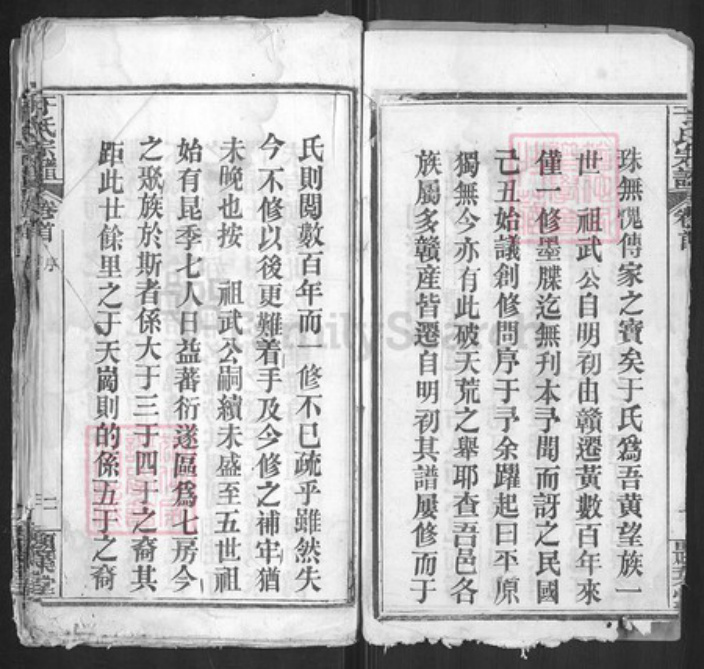 珠無愧傳家之寶矣于氏爲吾黄望族一
世 祖武公自明初由贛遷黄數百年來
僅一修墨牒迄無刋本予聞而訝之民國
己丑始議創修問序于予余躍起曰平原
獨無今亦有此破天荒之舉耶查吾邑各
族屬多贛産皆遷自明初其譜屢修而于
氏則閱數百年而 修不已疏乎雖然失
今不修以後更難着手及今修之補牢猶
未晚也按 祖武公嗣續未盛至五世祖
始有昆季七人日益蕃衍遂區爲七房今
之聚族於斯者係大于三于四于之裔其
距此廿餘里之于天崗則的係五于之裔
于氏宗譜 卷首 序 二
于氏宗譜 卷首
FamilySearch